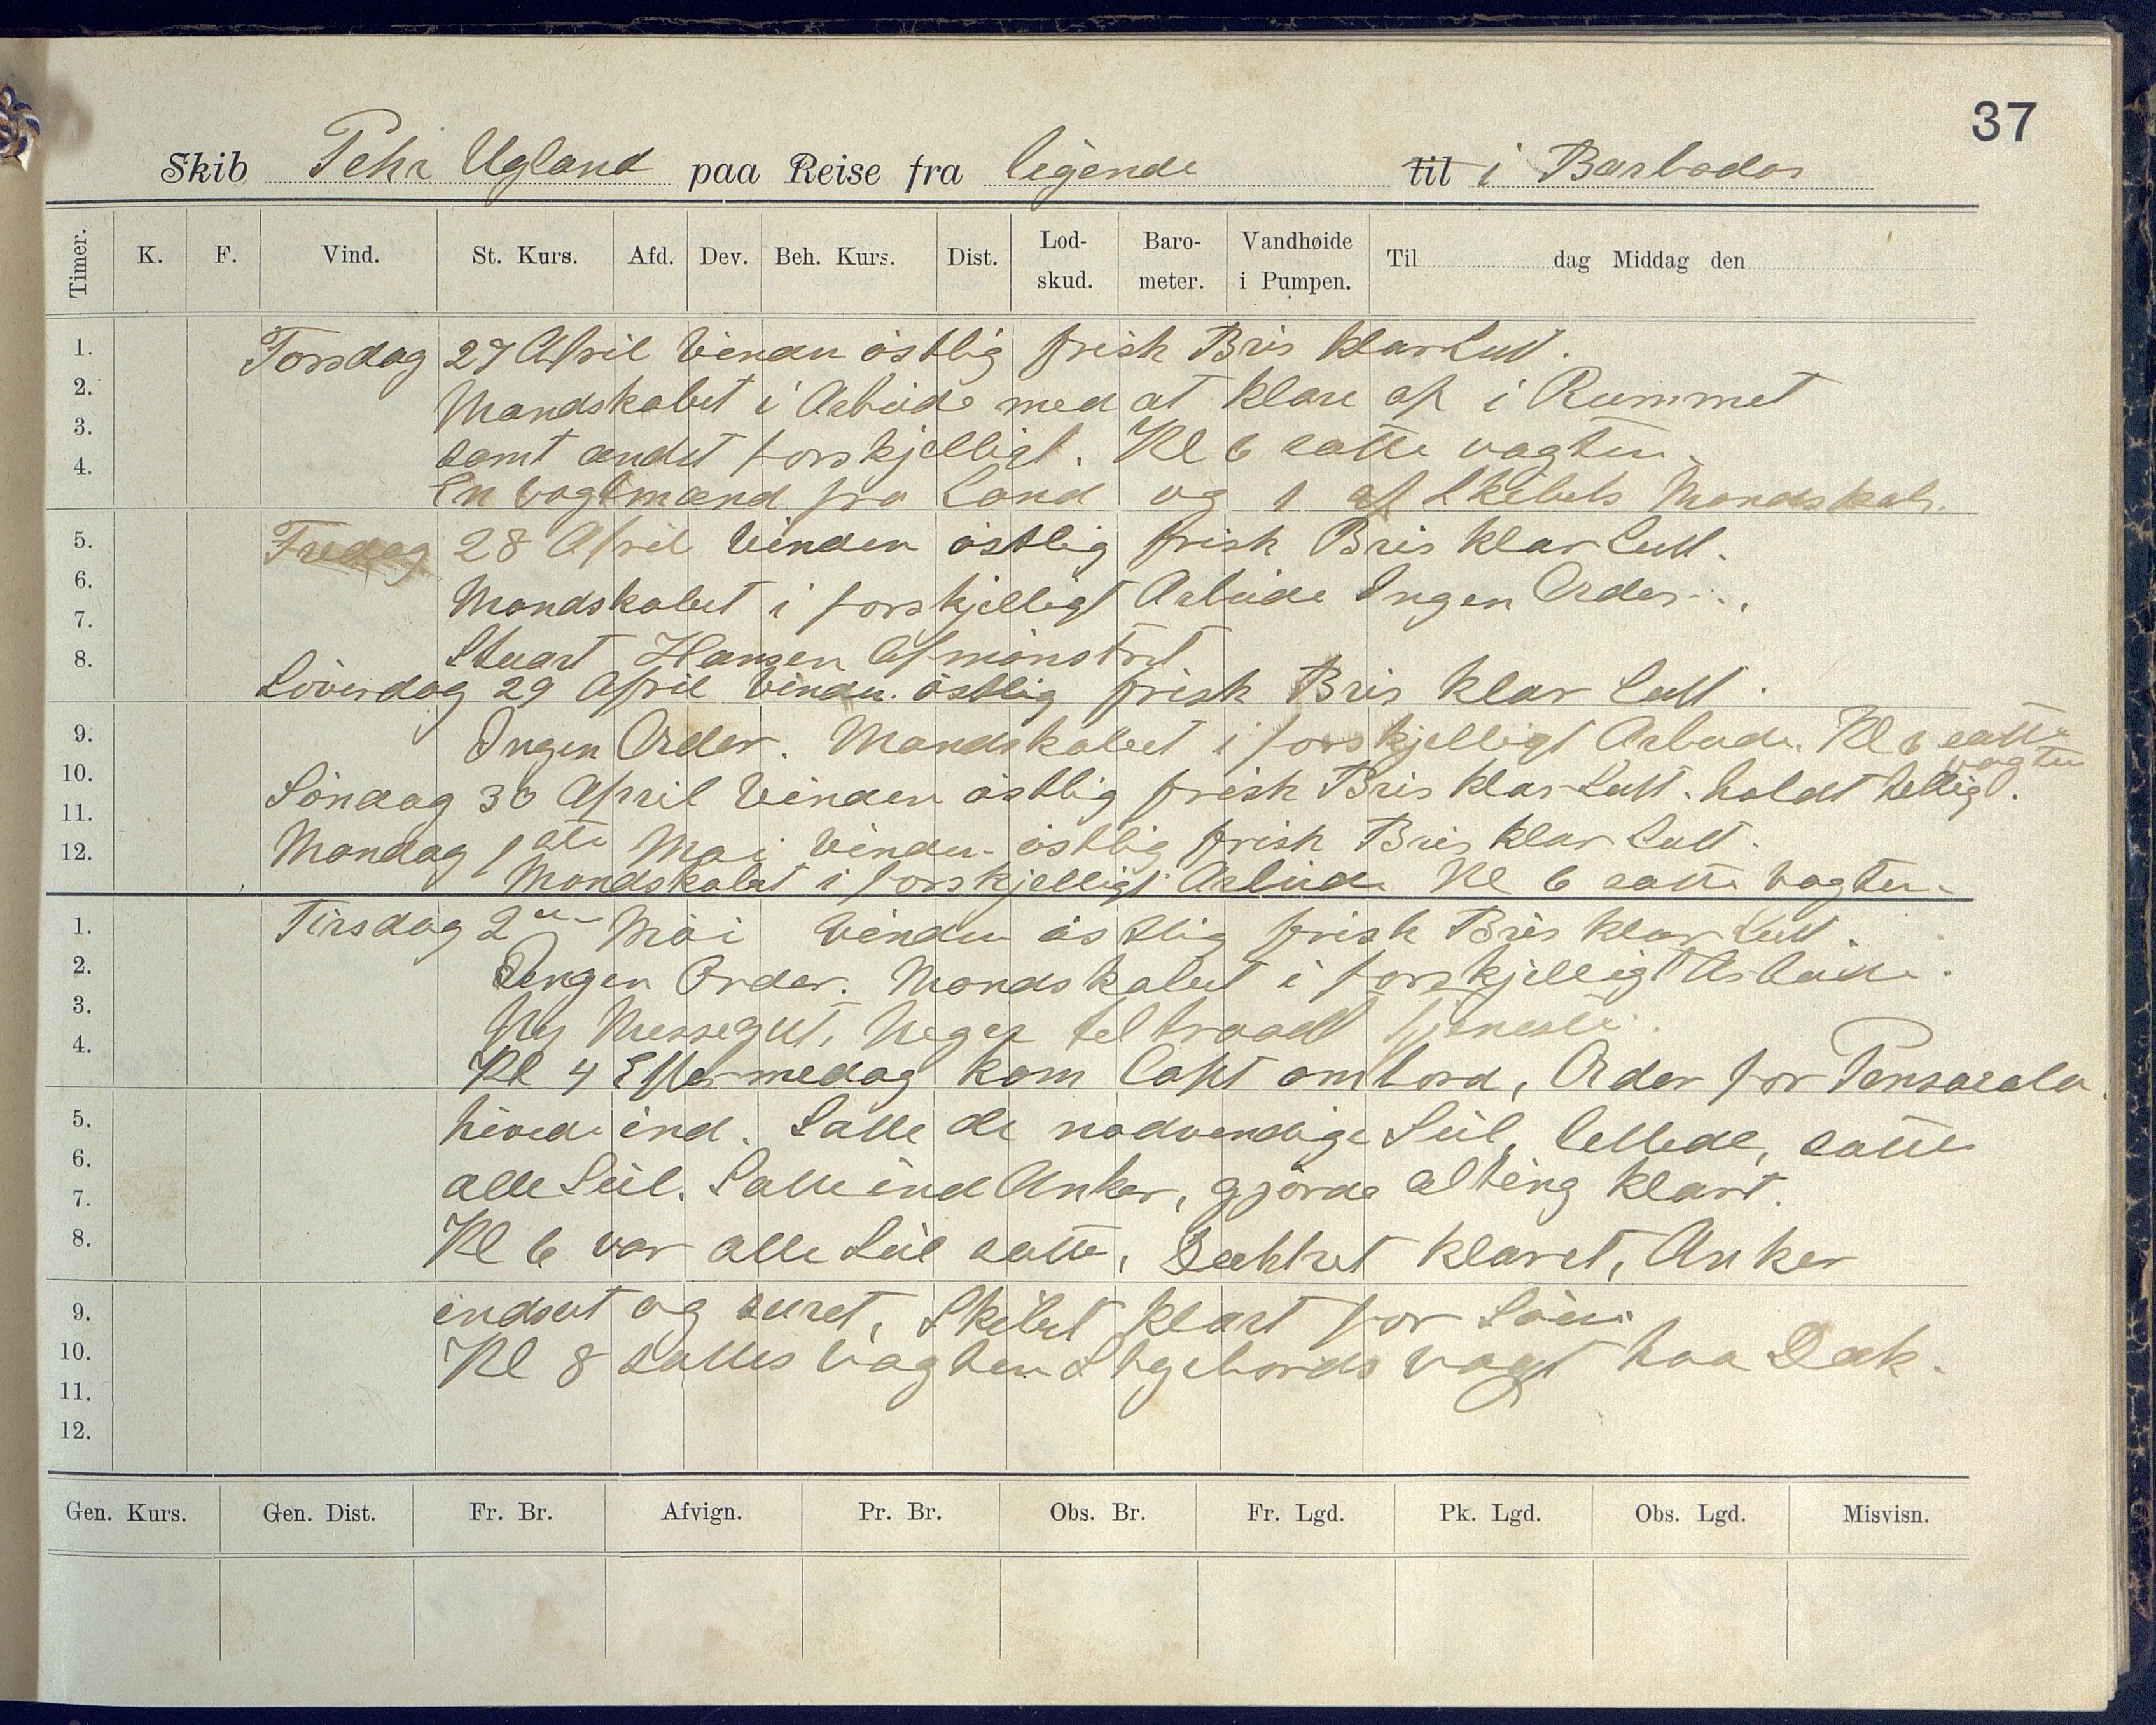 37
Skib Pehr Ugland paa Reise fra ligende til i Barbados
Timer. K. F. Vind. St. Kurs. Afd. Dev. Beh. Kurs. Dist. Lod-skud. Baro-meter. Vandhøide i Pumpen. Til dag Middag den
1. Torsdag 27 April Vinden östlig frisk Bris klar Luft.
2. Mandskabet i Arbeide med at klare op i Rummet
3. samt andet forskjelligt. Kl 6 satte vagten.
4. En vagtmand fra Land og 1 af Skibets Mandskab.
5. Fredag 28 April Vinden östlig frisk Bris klar Luft.
6. Mandskabet i forskjelligt Arbeide Ingen Order.
7.
8. Stuart Hansen Afmönstret
Löverdag 29 April Vinden östlig frisk Bris klar Luft.
9. Ingen Order. Mandskabet i forskjelligt Arbeide. Kl 6 satte vagten
10. Söndag 30 April Vinden östlig frisk Bris klar Luft. holdt hellig.
11.
12. Mandag 1ste Mai Vinden östlig frisk Bris klar Luft.
Mandskabet i forskjelligt Arbeide Kl 6 satte vagten.
1. Tirsdag 2den Mai Vinden östlig frisk Bris klar Luft.
2. Ingen Order. Mandskabet i forskjelligt Arbeide.
3. Ny Messegut, Neger tiltraadt tjeneste.
4. Kl 4 Eftermedag kom Capt ombord, Order for Pensacola.
5. hivede ind. Satte de nødvendige Seil, lettede, satte
6. alle Seil. Satte ind Anker, gjorde alting klart.
7.
8. Kl 6 var alle Seil satte, Dækket klaret, Anker
9. indsat og suret, Skibet klart for Söen.
10. Kl 8 sattes vagten Styrbords vagt paa Dæk.
11.
12.
Gen. Kurs. Gen. Dist. Fr. Br. Afvign. Pr. Br. Obs. Br. Fr. Lgd. Pk. Lgd. Obs. Lgd. Misvisn.